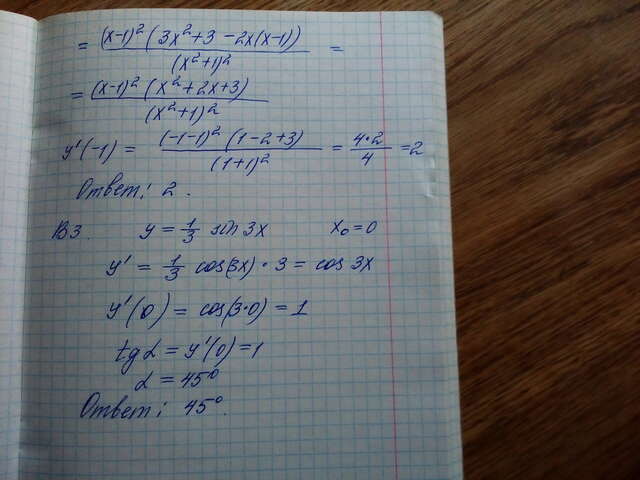 = (x-1)² (3x²+3-2x(x-1)) / (x²+1)² =
= (x-1)² (x²+2x+3) / (x²+1)²
y'(-1) = (-1-1)² (1-2+3) / (1+1)² = 4·2 / 4 = 2
Ответ: 2.
B3. y = 1/3 sin 3x x₀=0
y' = 1/3 cos(3x)·3 = cos 3x
y'(0) = cos(3·0) = 1
tg α = y'(0) = 1
α = 45°
Ответ: 45°.